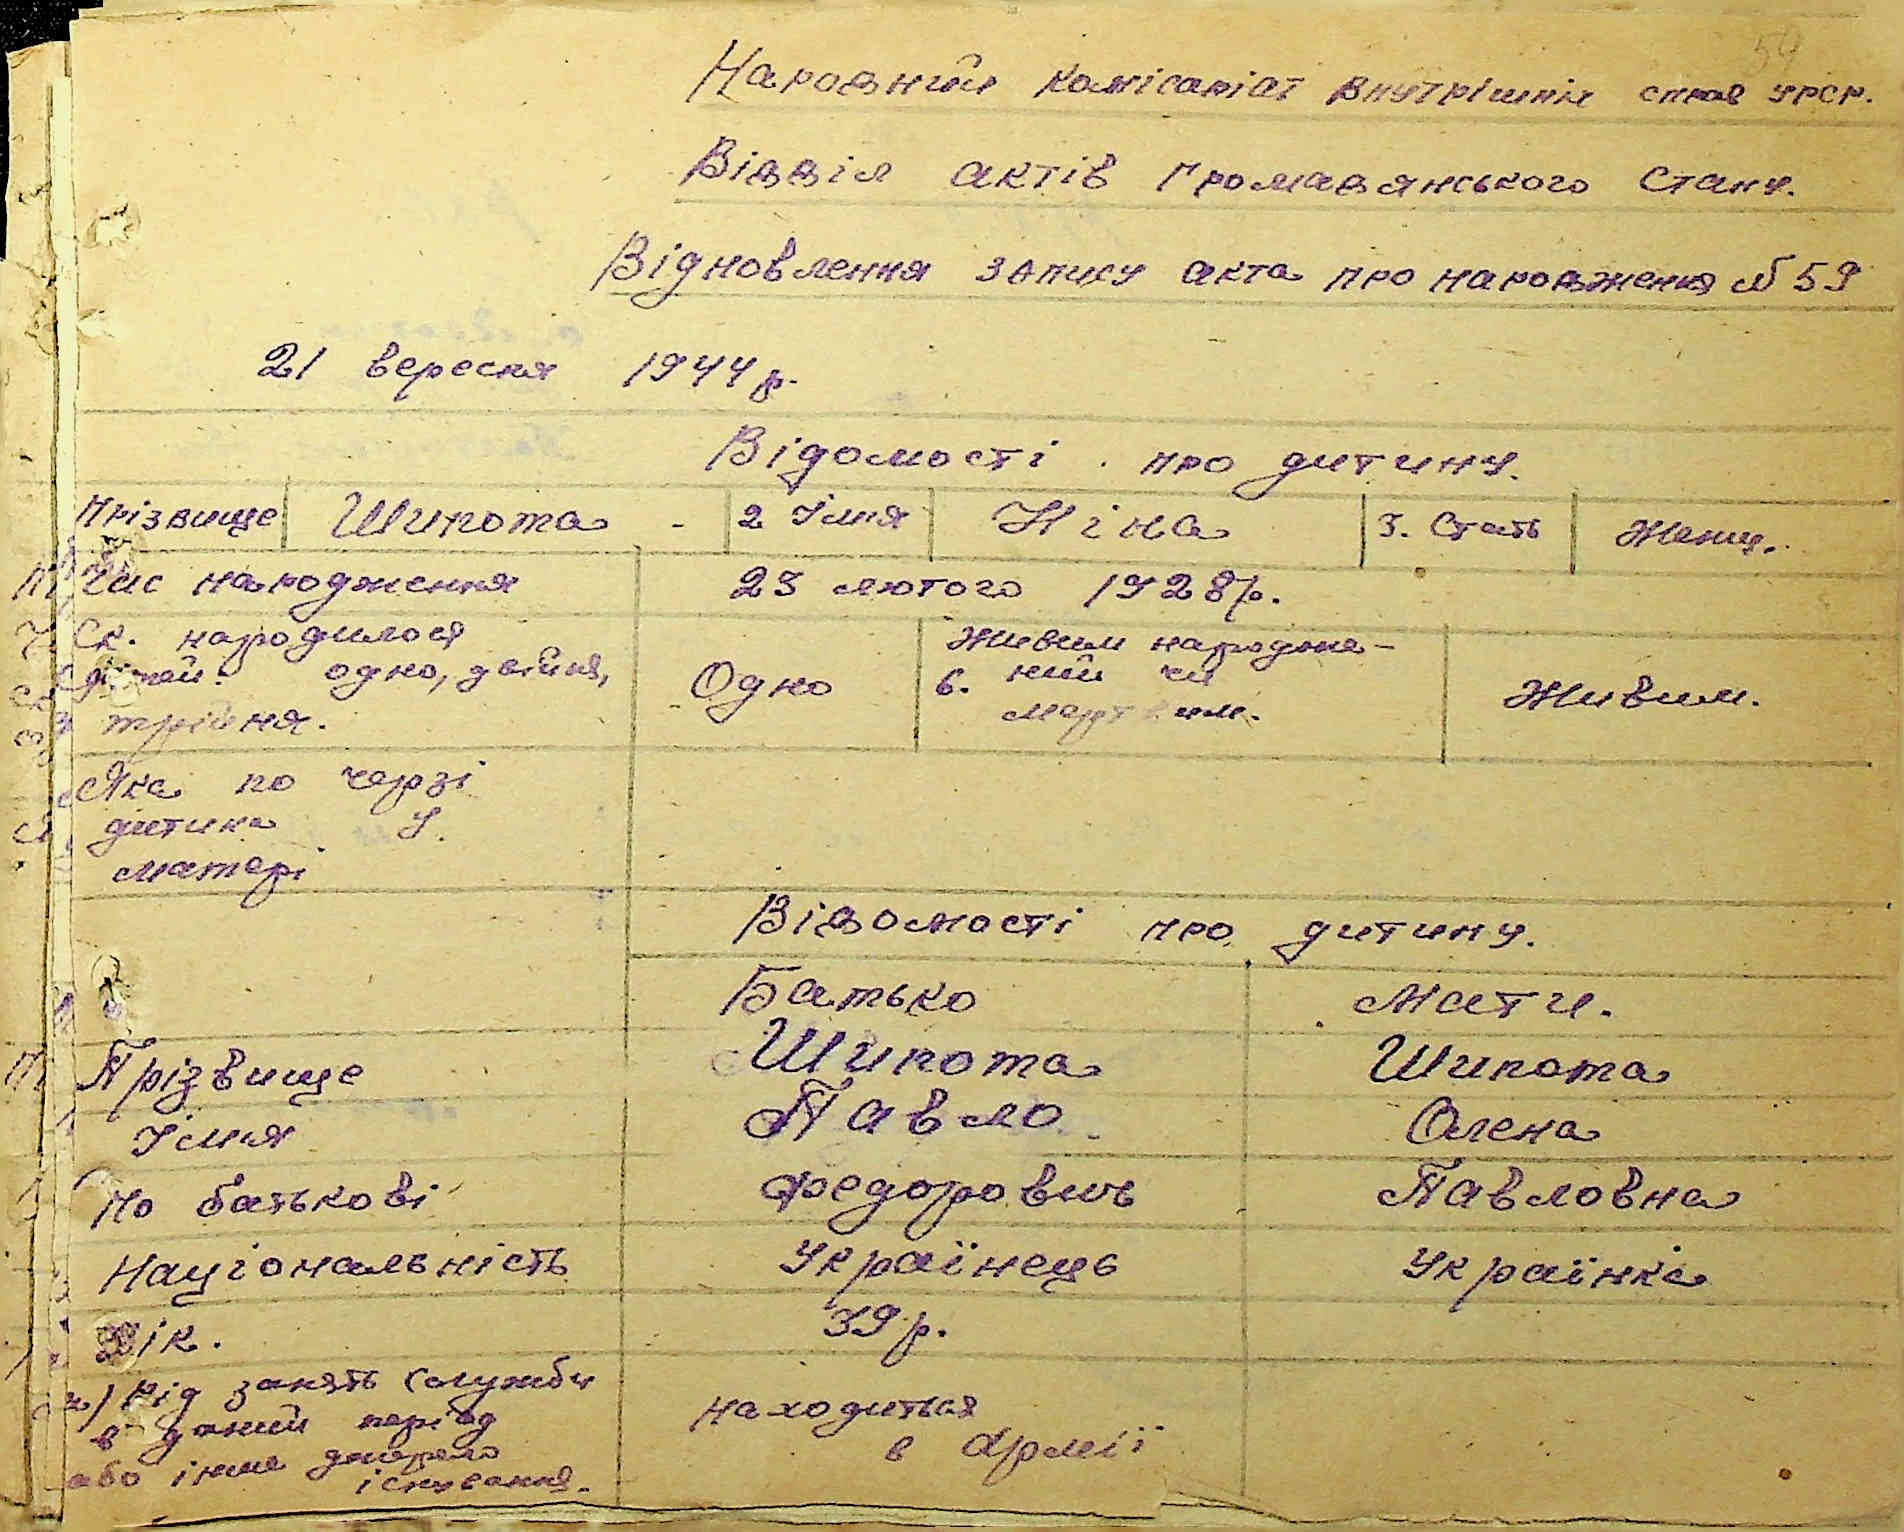 59
Народний комісаріат внутрішніх справ УРСР.
Відділ актів громадянського стану.
Відновлення запису акта про народження № 59
21 вересня 1944 р.
Відомості про дитину.
Прізвище Шипота - 2 Імня Ніна 3. Стать Женщ.
Час народження 23 лютого 1928 р.
Ск. народилося Живим народже-
дітей: одно, двійня, Одно 6. ний чи Живим.
трійня. мертвим.
Яка по черзі
дитина у
матері
Відомості про дитину.
Батько Мати.
Прізвище Шипота Шипота
Імня Павло Олена
По батькові Федорович Павловна
Національність Українець Українка
Вік. 39 р.
а) Рід занять служби
в даний період находиться
або інше джерело в Армії
існування.